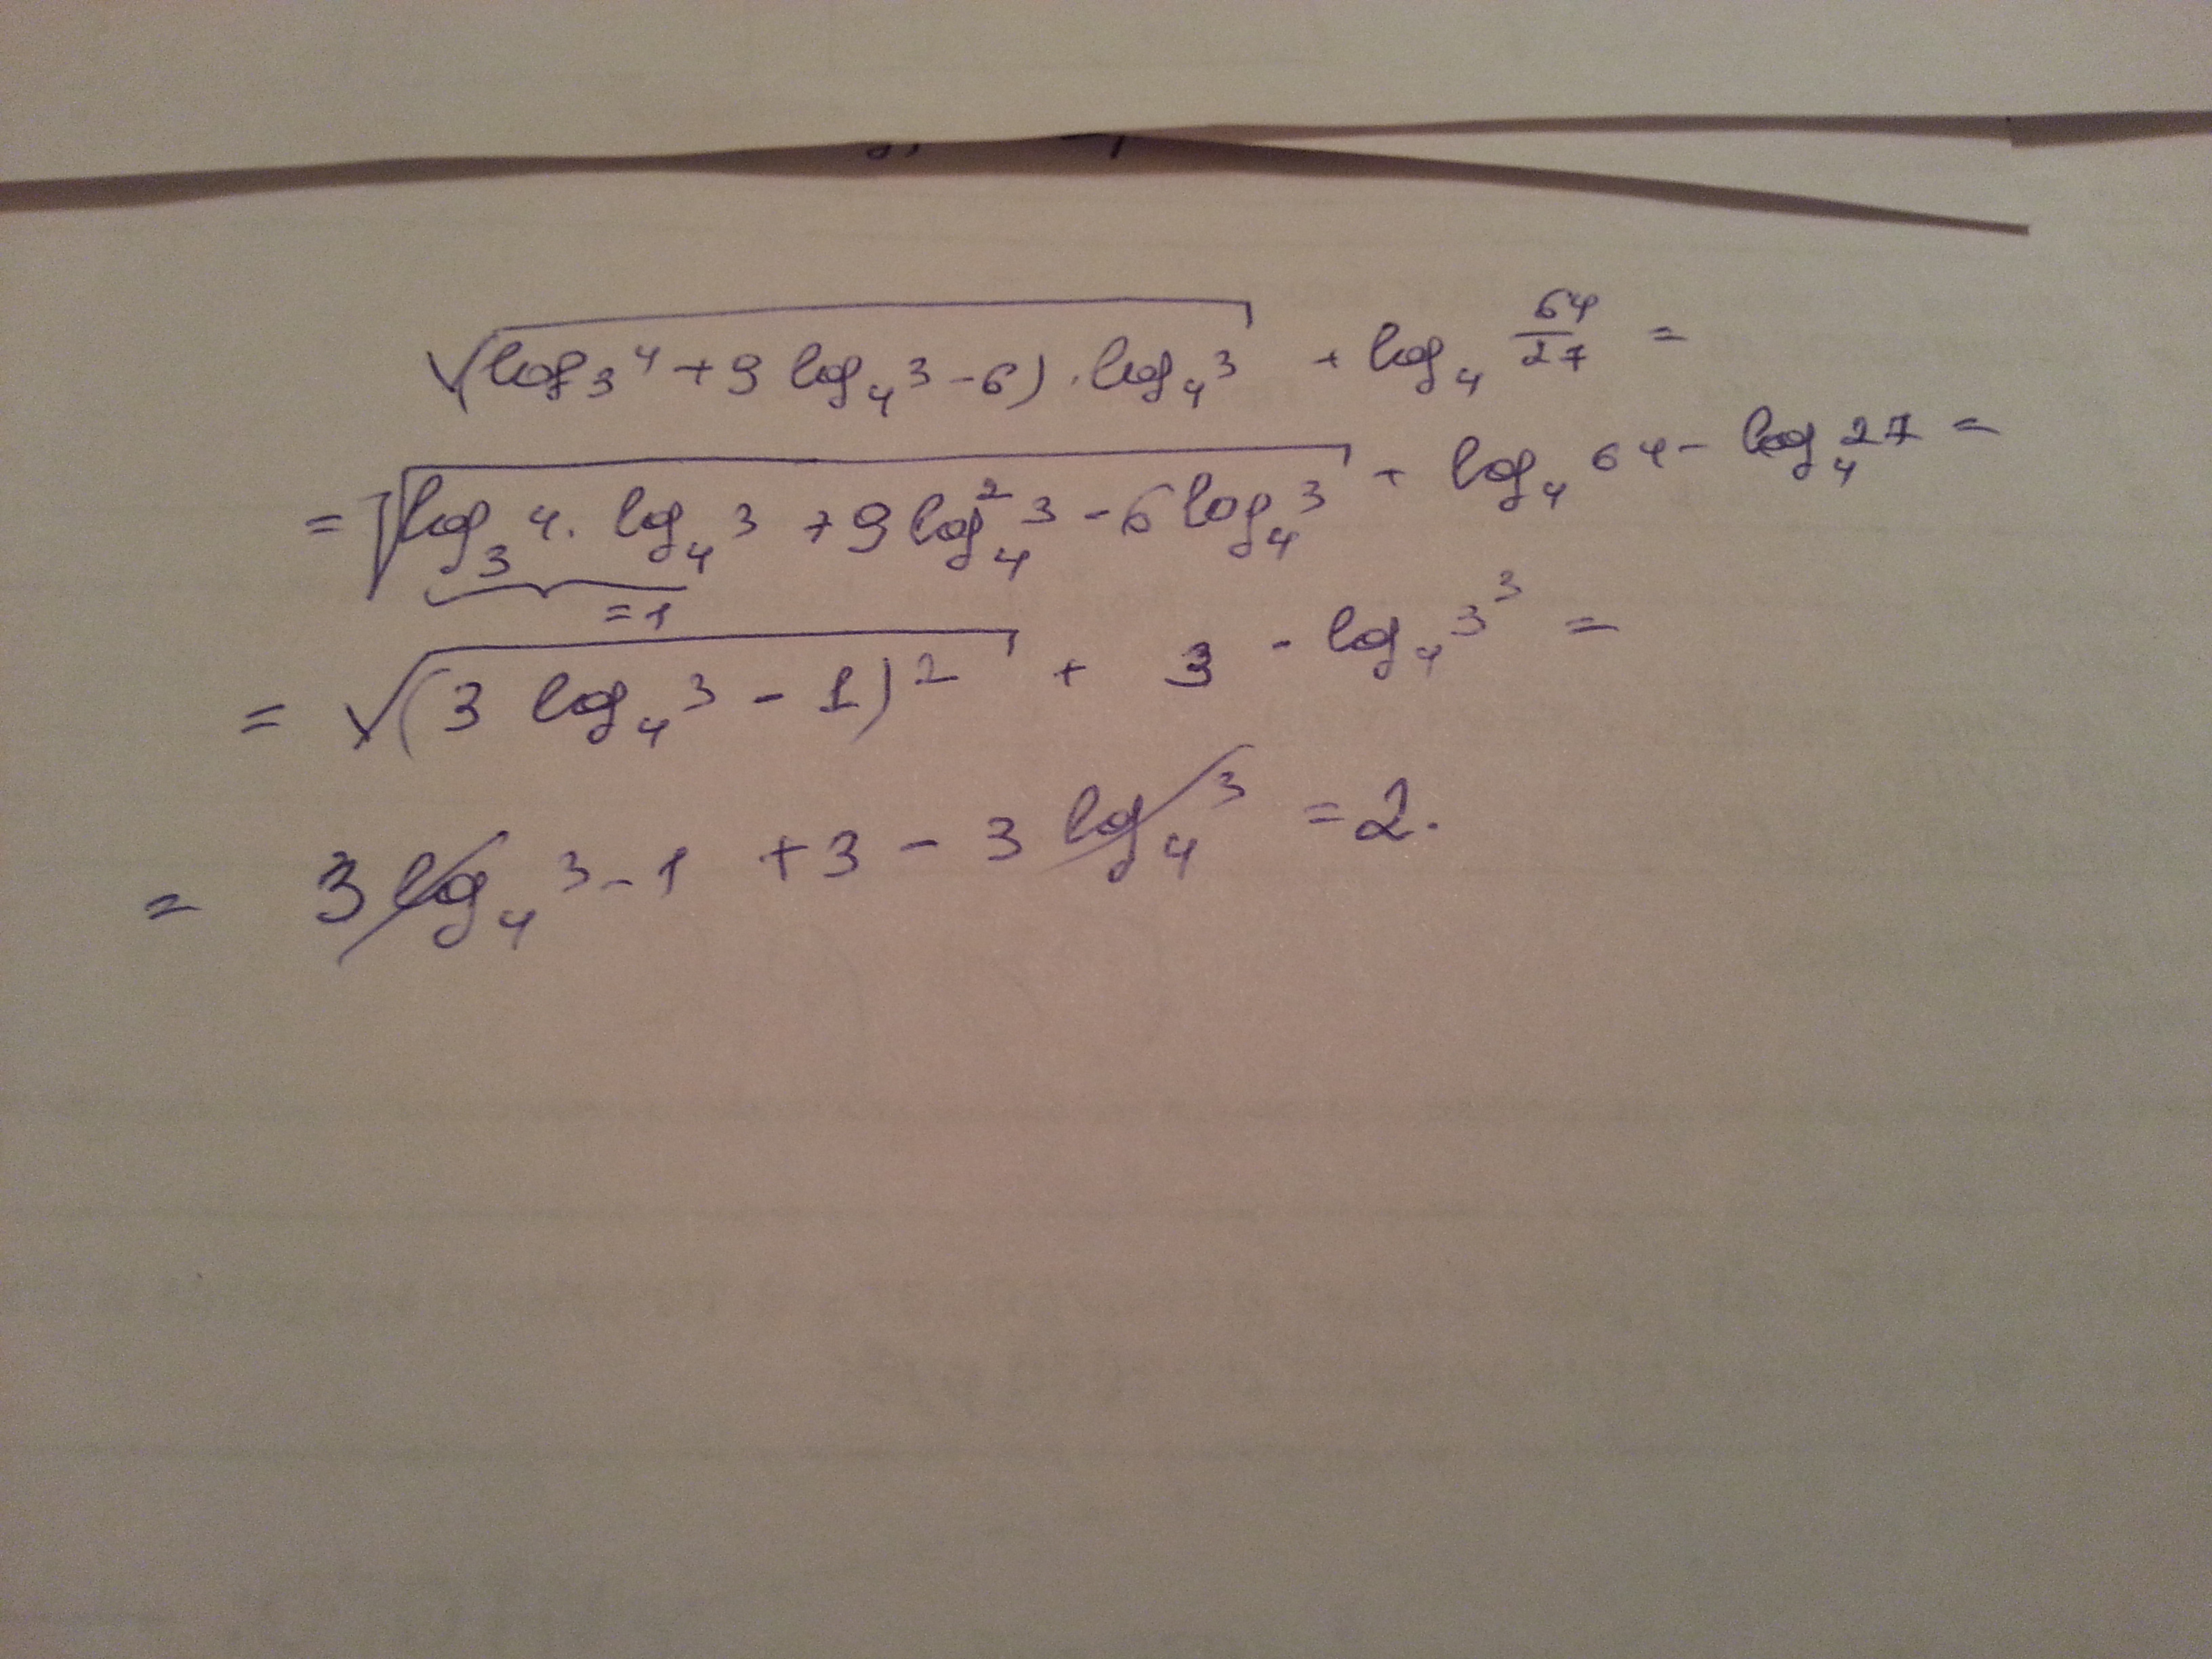 √((log₃4 + 9 log₄3 - 6) · log₄3) + log₄ 64/27 =
= √(log₃4 · log₄3 + 9 log₄²3 - 6 log₄3) + log₄64 - log₄27 =
= 1
= √((3 log₄3 - 1)²) + 3 - log₄3³ =
= 3 log₄3 - 1 + 3 - 3 log₄3 = 2.